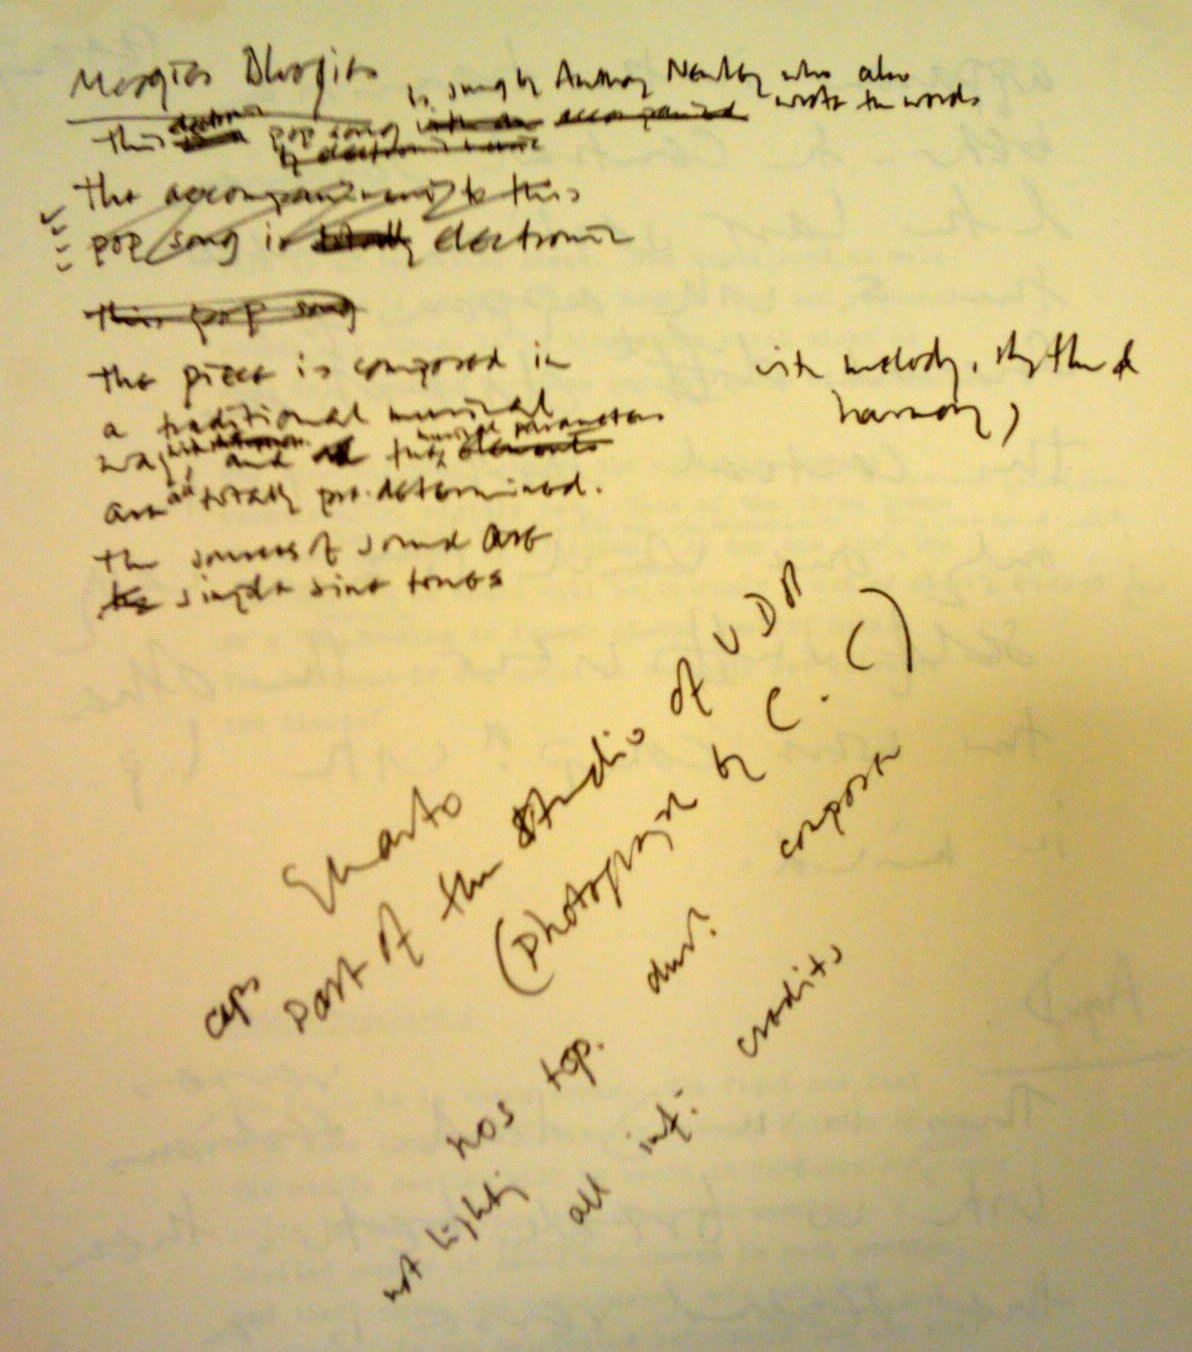 Moogies Bloogies
is sung by Anthony Newley who also
wrote the words
This electronic pop song with an accompanied
by electronic music
The accompaniment to this
pop song is totally electronic
This pop song
The piece is composed in
a traditional musical
way, and all the musical parameters elements
are all totally pre-determined.
with melody, rhythm &
harmony,
The sources of sound are
simple sine tones
Quarto
caps Part of the studio of UDM
(Photograph by C. C)
nos top. dur. composer
not light, all inf: credits